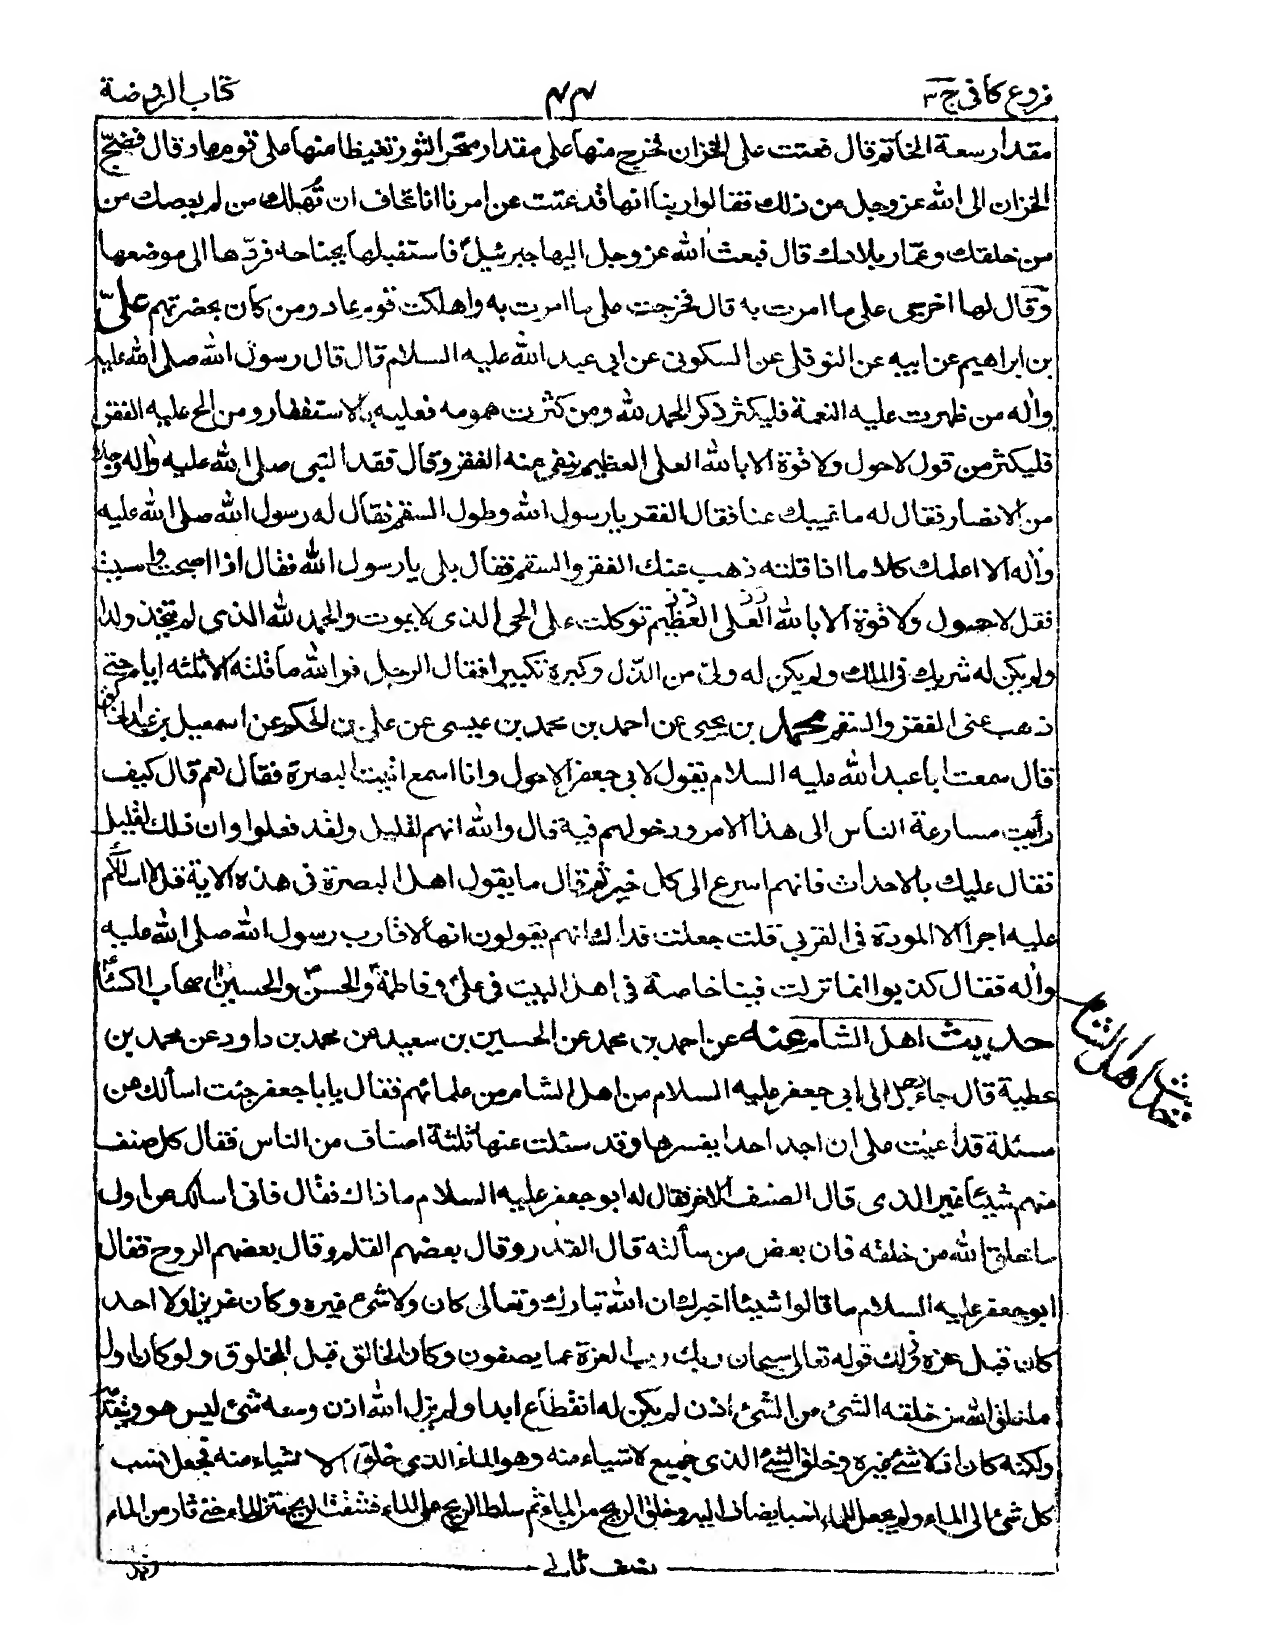 فروع كافى ج ٣
٤٤
كتاب الروضة
مقدار سعة الخاتم قال فعتت على الخزان فخرج منها على مقدار منخر الثور تغيظا منها على قوم عاد قال فضجّ
الخزان الى الله عز وجل من ذلك فقالوا ربنا انها قد عتت عن امرنا انا نخاف ان تُهلك من لم يعصك من
من خلقك وعمّار بلادك قال فبعث الله عز وجل اليها جبرئيل فاستقبلها بجناحه فردّها الى موضعها
وقال لها اخرجى على ما امرت به قال فخرجت على ما امرت به واهلكت قوم عاد ومن كان بحضرتهم علىّ
بن ابراهيم عن ابيه عن النوفلى عن السكونى عن ابى عبد الله عليه السلام قال قال رسول الله صلى الله عليه
وآله من ظهرت عليه النعمة فليكثر ذكر الحمد لله ومن كثرت همومه فعليه بالاستغفار ومن الح عليه الفقر
فليكثر من قول لا حول ولا قوة الا بالله العلى العظيم ينفى عنه الفقر وقال فقد النبى صلى الله عليه وآله رجلا
من الانصار فقال له ما غيبك عنا فقال الفقر يا رسول الله وطول السقم فقال له رسول الله صلى الله عليه
وآله الا اعلمك كلاما اذا قلته ذهب عنك الفقر والسقم فقال بلى يا رسول الله فقال اذا اصبحت وامسيت
فقل لا حول ولا قوة الا بالله العلى العظيم توكلت على الحى الذى لا يموت والحمد لله الذى لم يتخذ ولدا
ولم يكن له شريك فى الملك ولم يكن له ولىّ من الذّل وكبره تكبيرا فقال الرجل فو الله ما قلته الا ثلثة ايام حتى
ذهب عنى الفقر والسقم محمد بن يحيى عن احمد بن محمد بن عيسى عن على بن الحكم عن اسمعيل بن عبد الخالق
قال سمعت ابا عبد الله عليه السلام يقول لابى جعفر الاحول وانا اسمع اتيت البصرة فقال نعم قال كيف
رأيت مسارعة الناس الى هذا الامر ودخولهم فيه قال والله انهم لقليل ولقد فعلوا وان ذلك لقليل
فقال عليك بالاحداث فانهم اسرع الى كل خير ثم قال ما يقول اهل البصرة فى هذه الاية قل لا اسألكم
عليه اجرا الا المودة فى القربى قلت جعلت فداك انهم يقولون انها لاقارب رسول الله صلى الله عليه
وآله فقال كذبوا انما نزلت فينا خاصة فى اهل البيت فى علىّ وفاطمة والحسن والحسين اصحاب الكساء
حديث اهل الشام عنه عن احمد بن محمد عن الحسين بن سعيد عن محمد بن داود عن محمد بن
حديث اهل الشام
عطية قال جاء رجل الى ابى جعفر عليه السلام من اهل الشام من علمائهم فقال يابا جعفر جئت اسألك عن
مسئلة قد اعيت على ان اجد احدا يفسرها وقد سئلت عنها ثلثة اصناف من الناس فقال كل صنف
منهم شيئا غير الذى قال الصنف الاخر فقال له ابو جعفر عليه السلام ما ذاك فقال فانى اسالك عن اول
ما خلق الله من خلقه فان بعض من سألته قال القدر وقال بعضهم القلم وقال بعضهم الروح فقال
ابو جعفر عليه السلام ما قالوا شيئا اخبرك ان الله تبارك وتعالى كان ولا شئ غيره وكان عزيزا ولا احد
كان قبل عزه وذلك قوله تعالى سبحان ربك رب العزة عما يصفون وكان الخالق قبل المخلوق ولو كان اول
ما خلق الله من خلقه الشئ من الشئ اذن لم يكن له انقطاع ابدا ولم يزل الله اذن ومعه شئ ليس هو يتقدّمه
ولكنه كان اذ لا شئ غيره وخلق الشئ الذى جميع الاشياء منه وهو الماء الذى خلق الاشياء منه فجعل نسب
كل شئ الى الماء ولم يجعل للماء نسبا يضاف اليه وخلق الريح من الماء ثم سلط الريح على الماء فشققت الريح متن الماء حتى ثار من الماء
نصف ثانى
زبد